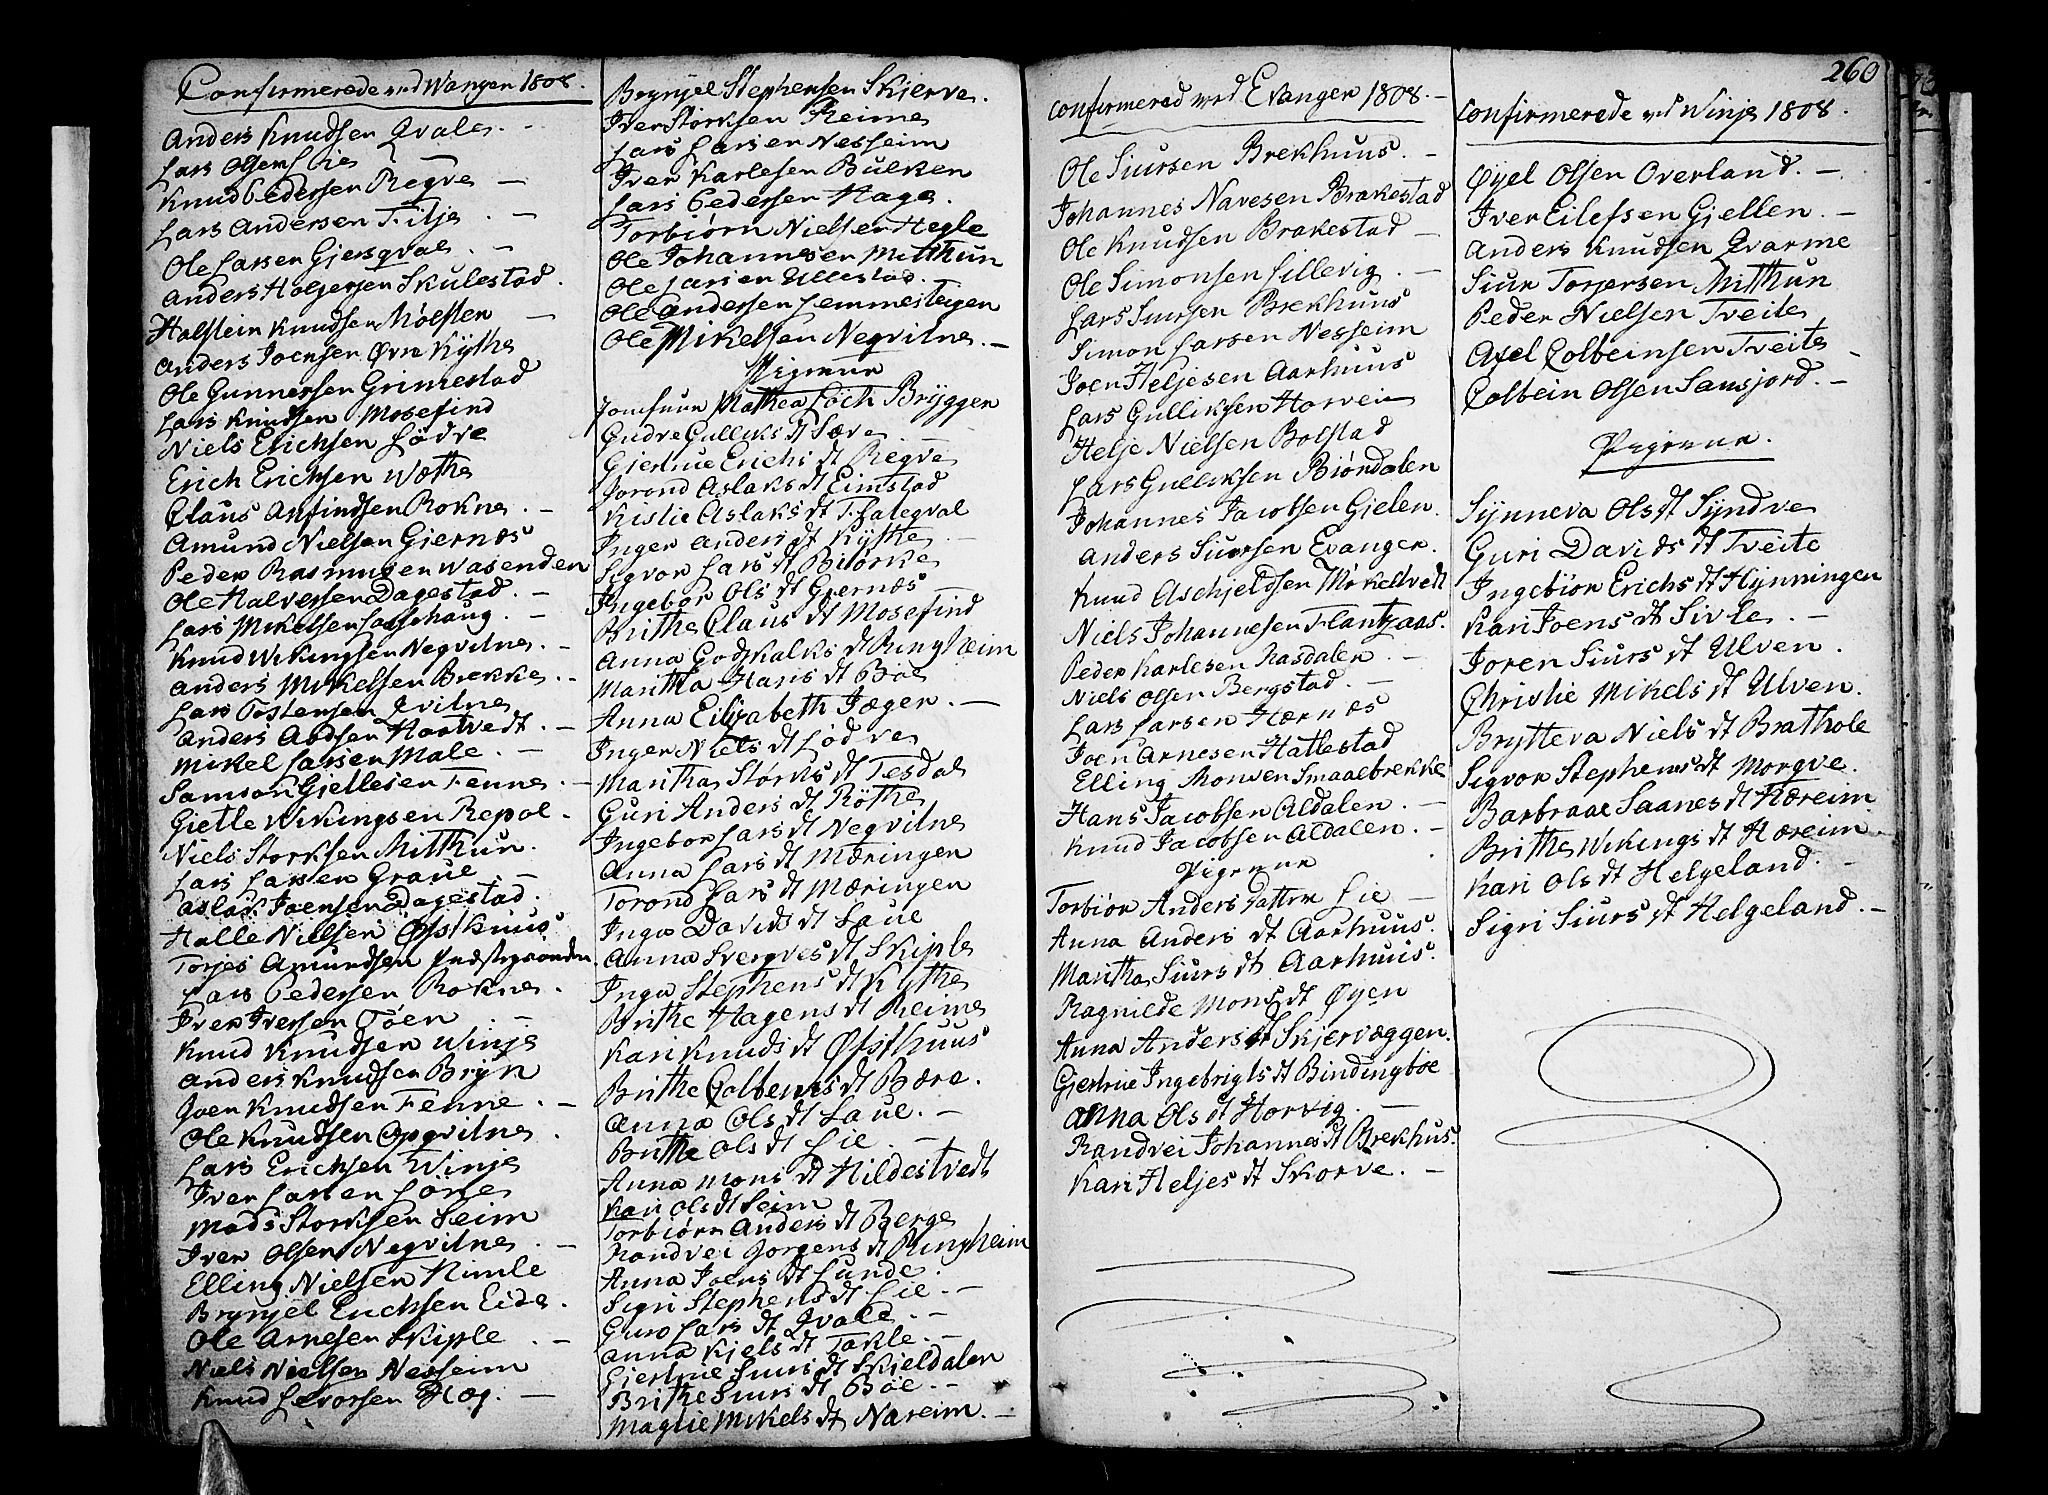 Confirmerede ved Wangen 1808.
Anders Knudsen Qvale. -
Lars Olsen Lie
Knud Pedersen Regve -
Lars Andersen Filje . -
Ole Larsen Gjersqval . -
Anders Holgersen Skulestad .
Halstein Knudsen Mølster -
Anders Joensen Øvre Kythe
Ole Gunnersen Grimestad
Lars Knudsen Mosefind
Niels Erichsen Lødve
Erich Erichsen Wæthe
Claus Anfindsen Rokne . -
Amund Nielsen Giernæs
Peder Rasmusen Wasenden
Ole Halversen Dagestad . -
Lars Mikelsen Lasschaug . -
Knud Wikingsen Neqvilne . -
Anders Mikelsen Brekke . -
Lars Tostensen Qvilne
Anders Andsen Haatvedt . -
Mikel Larsen Male . -
Samson Gietlesen Fenne . -
Gietle Wikingsen Repal .
Niels Storksen Mitthun .
Lars Larsen Graue . -
Aslak Joensen Dagestad .
Halle Nielsen Øfsthuus
Torjes Amundsen
Lars Pedersen Rokne .
Iver Iversen Tøen . -
Knud Knudsen Winje
Anders Knudsen Bryn
Joen Knudsen Fenne . -
Ole Knudsen Opqvilne .
Lars Erichsen Winje
Iver Larsen Løne
Mads Storksen Seim
Iver Olsen Neqvilne . -
Elling Nielsen Himle
Brynjel Erichsen Eide .
Ole Arnesen Skiple . -
Niels Nielsen Nesheim
Knud Sevorsen Hæg . -
Brynjel Stephensen Skjerve .
Iver Storksen Reime
Lars Larsen Nesheim
Iver Karlesen Bulken
Lars Pedersen Hage .
Torbiørn Nielsen Hegle
Ole Johannesen Mitthun
Ole Larsen Ullestad . -
Ole Andersen Lemmesteigen
Ole Mikelsen Neqvilne . -
Pigerne
Jomfrue Mathea Loch Bryggen
Gudve Gulliks dt Sæve . -
Giertrue Erichs dt Regve
Jorond Aslaks dt Eimstad
Kistie Aslaks dt Thaleqval
Inger Anders dt Kythe . -
Sigvor Lars dt Biørke
Ingebor Ols dt Giernæs
Brithe Claus dt Mosefind
Anna Godskalks dt Ringheim
Maritha Hans dt Bøe
Anna Elizabeth Jæger . -
Inger Niels dt Lødve
Maritha Størks dt Tesdal
Guri Anders dt Røthe
Ingebor Lars dt Neqvilne
Anna Lars dt Mæringen
Torond Lars dt Mæringen
Inga Davids dt Laue
Anna Sverqves dt Skiple
Inga Stephens dt Kythe
Brithe Hagens dt Reime
Kari Knuds dt Øfsthuus
Brithe Colbens dt Bære .
Anna Ols dt Laue . -
Brithe Ols dt Lie . -
Anna Mons dt Hildestvedt
Kari Ols dt Seim
Torbiørn Anders dt Berge
Randvei Jørgens dt Ringheim
Anna Joens dt Lunde .
Sigri Stephens dt Lie . -
Guro Lars dt Qvale . -
Anna Kiels dt Takle . -
Giertrue Siurs dt Skieldalen
Brithe Siurs dt Bøe . -
Maglie Mikels dt Nareim . -
Confirmered ved Evanger 1808. -
Ole Siursen Brekhuus . -
Johannes Navesen Brakestad
Ole Knudsen Brakestad -
Ole Simonsen Lillevig . -
Lars Siursen Brekhuus
Simon Larsen Nesheim
Joen Heljesen Aarhuus
Lars Gulliksen Horvei
Helje Nielsen Bolstad
Lars Gulliksen Biøndalen
Johannes Jacobsen Gielen .
Anders Siursen Evanger .
Knud Aschjeldsen Mokeltvedt
Niels Johannesen Flantzaas .
Peder Karlesen Rasdalen . -
Niels Olsen Bergstad . -
Lars Larsen Hærnæs
Joen Arnesen Hallestad
Elling Monsen Smaaebrekke
Hans Jacobsen Aldalen . -
Knud Jacobsen Aldalen . -
Pigerne
Torbior Anders datter Lie -
Anna Anders dt Aarhuus .
Maritha Siurs dt Aarhuus .
Ragnilde Mons dt Øyen
Anna Anders dt Skjervæggen .
Gjertrue Ingebrigts dt Bindingbøe
Anna Ols dt Horvig . -
Randvei Johannes dt Brekhus .
Kari Heljes dt Skorve . -
260
Confirmerede ved Winje 1808 .
Øyel Olsen Overland . -
Iver Eilefsen Gjellen . -
Anders Knudsen Qvarme
Siur Torjersen Mitthun
Peder Nielsen Tveite
Axel Colbeinsen Tveite -
Colbein Olsen Sausjord . -
Pigerne .
Synneva Ols dt Syndve
Guri Davids dt Tveite
Ingebior Erichs dt Hynningen
Kari Joens dt Sivle . -
Joren Siurs dt Ulven .
Christie Mikels dt Ulven .
Brytteva Niels dt Brathole
Sigvor Stephens dt Morqve .
Barbraae Saanes dt Hæreim
Brithe Wikings dt Hæreim .
Kari Ols dt Helgeland . -
Sigri Siurs dt Helgeland . -